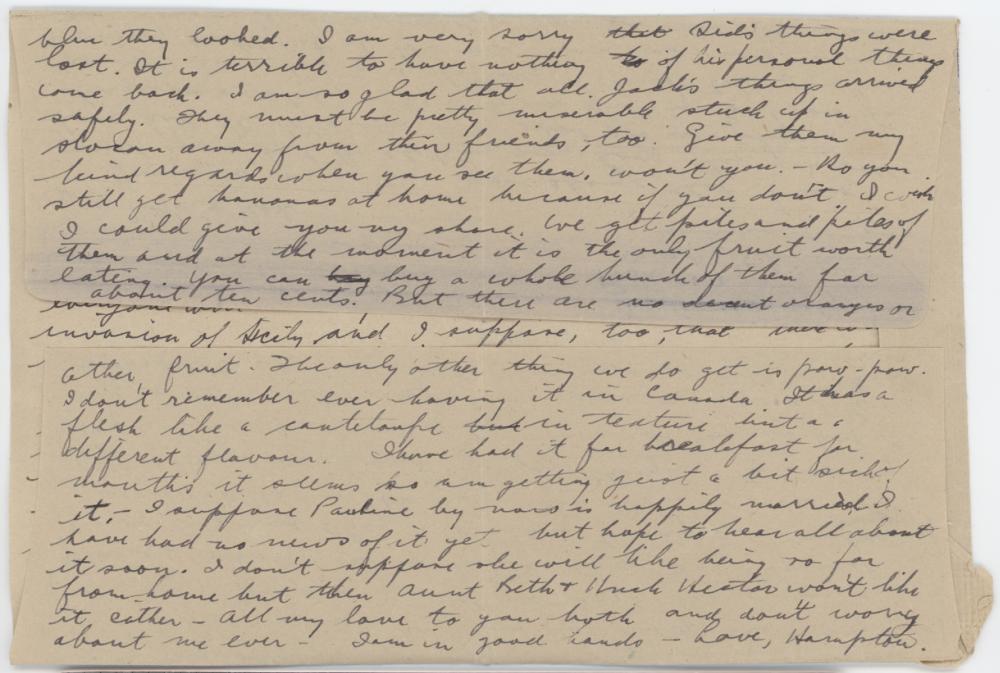 blue they looked. I am very sorry that Sid's things were
lost. It is terrible to have nothing to of his personal things
come back. I am so glad that all Jack's things arrived
safely. They must be pretty miserable stuck up in
Slocan away from their friends, too. Give them my
kind regards when you see them, won't you. - Do you
still get bananas at home because if you don't, I wish
I could give you my share. We get piles and piles of
them and at the moment it is the only fruit worth
eating. You can buy a whole bunch of them for
about ten cents. But there are no decent oranges or
everyone
invasion of Sicily and I suppose, too, that
other fruit. The only other thing we do get is paw-paw.
I don't remember ever having it in Canada. It has a
flesh like a canteloupe but in texture but a
different flavour. I have had it for breakfast for
months it seems so am getting just a bit sick of
it, - I suppose Pauline by now is happily married I
have had no news of it yet but hope to hear all about
it soon. I don't suppose she will like being so far
from home but then Aunt Beth & Unck Hector won't like
it either - All my love to you both and don't worry
about me ever - I am in good hands - Love, Hampton.